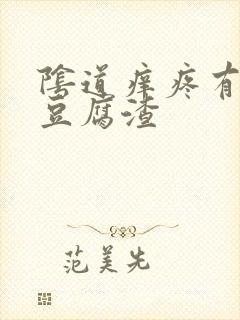 陰道痒疼有
豆腐渣
范美先